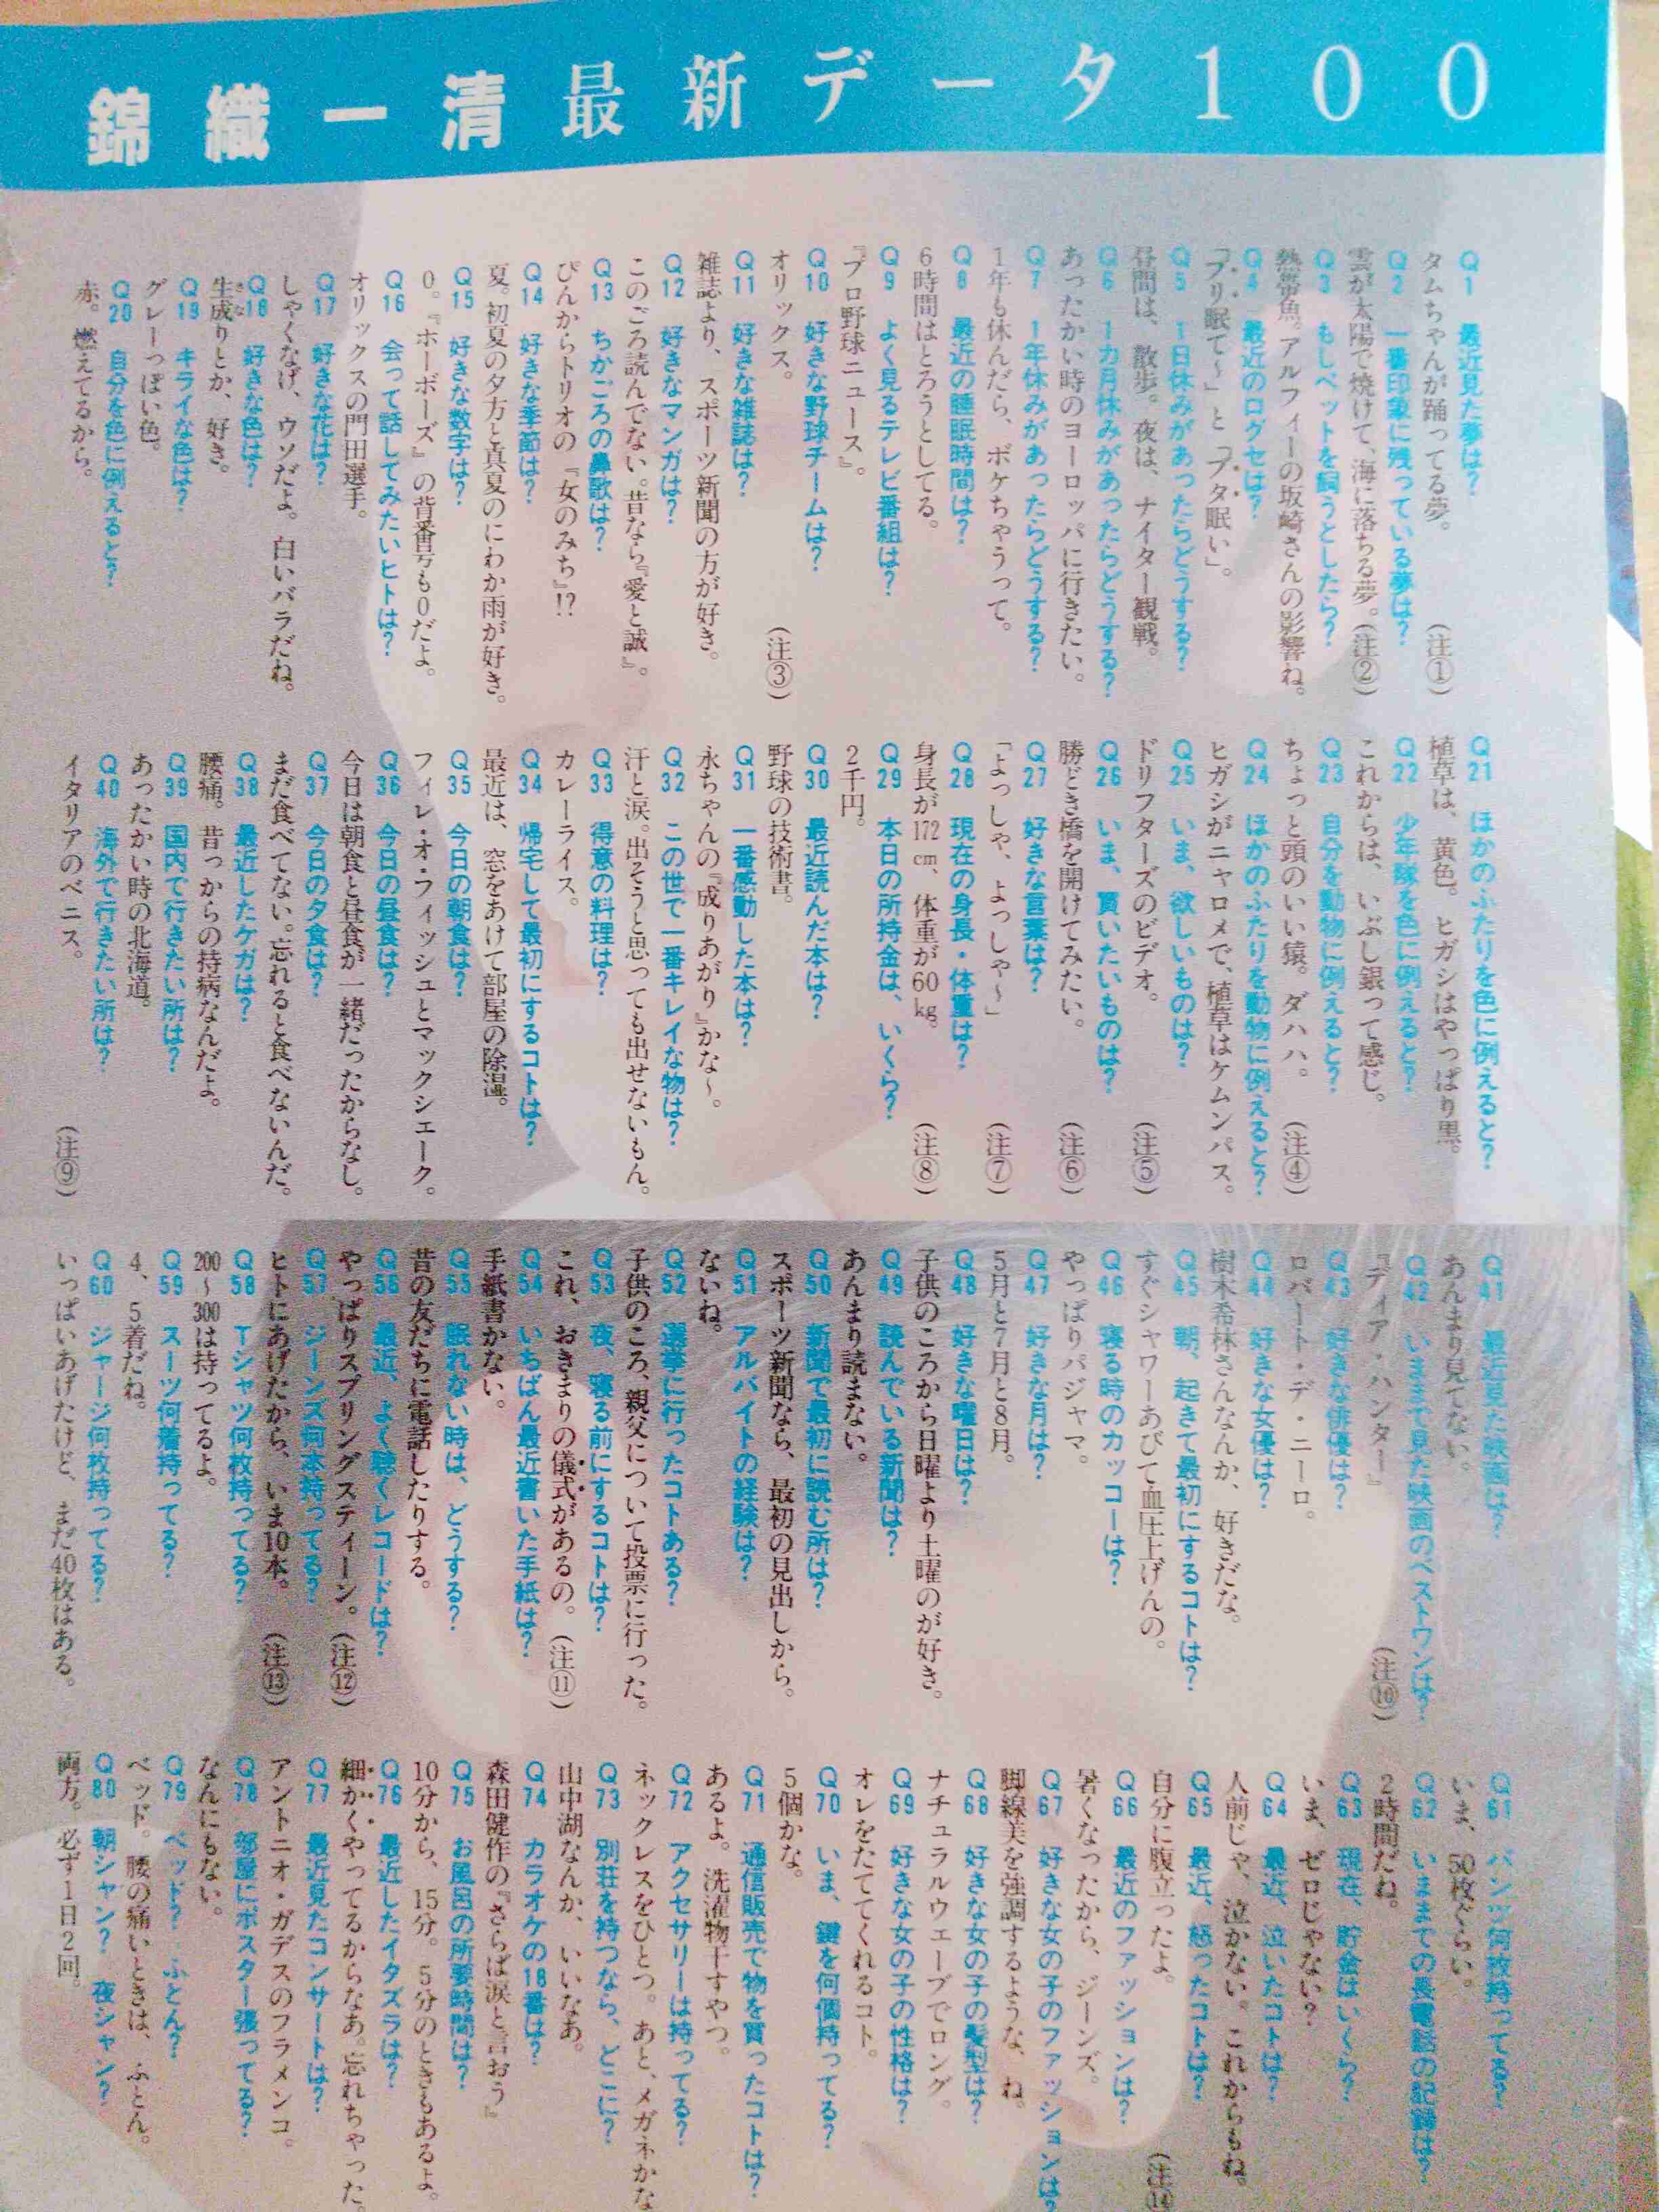 錦織一清最新データ100
Q1 最近見た夢は?
タムちゃんが踊ってる夢。(注①)
Q2 一番印象に残っている夢は?
雲が太陽で焼けて、海に落ちる夢。(注②)
Q3 もしペットを飼うとしたら?
熱帯魚。アルフィーの坂崎さんの影響ね。
Q4 最近のログセは?
「ブリ眠て〜」と「ブタ眠い」。
Q5 1日休みがあったらどうする?
昼間は、散歩。夜は、ナイター観戦。
Q6 1カ月休みがあったらどうする?
あったかい時のヨーロッパに行きたい。
Q7 1年休みがあったらどうする?
1年も休んだら、ボケちゃうって。
Q8 最近の睡眠時間は?
6時間はとろうとしてる。
Q9 よく見るテレビ番組は?
『プロ野球ニュース』。
Q10 好きな野球チームは?
オリックス。(注③)
Q11 好きな雑誌は?
雑誌より、スポーツ新聞の方が好き。
Q12 好きなマンガは?
このごろ読んでない。昔なら『愛と誠』。
Q13 ちかごろの鼻歌は?
ぴんからトリオの『女のみち』!?
Q14 好きな季節は?
夏。初夏の夕方と真夏のにわか雨が好き。
Q15 好きな数字は?
0。『ホーボーズ』の背番号も0だよ。
Q16 会って話してみたいヒトは?
オリックスの門田選手。
Q17 好きな花は?
しゃくなげ、ウソだよ。白いバラだね。
Q18 好きな色は?
生成りとか、好き。
Q19 キライな色は?
グレーっぽい色。
Q20 自分を色に例えると?
赤。燃えてるから。
Q21 ほかのふたりを色に例えると?
植草は、黄色。ヒガシはやっぱり黒。
Q22 少年隊を色に例えると?
これからは、いぶし銀って感じ。
Q23 自分を動物に例えると?
ちょっと頭のいい猿。ダハハ。(注④)
Q24 ほかのふたりを動物に例えると?
ヒガシがニャロメで、植草はケムンパス。
Q25 いま、欲しいものは?
ドリフターズのビデオ。(注⑤)
Q26 いま、買いたいものは?
勝どき橋を開けてみたい。(注⑥)
Q27 好きな言葉は?
「よっしゃ、よっしゃ〜」(注⑦)
Q28 現在の身長・体重は?
身長が172cm、体重が60kg。(注⑧)
Q29 本日の所持金は、いくら?
2千円。
Q30 最近読んだ本は?
野球の技術書。
Q31 一番感動した本は?
永ちゃんの『成りあがり』かな〜。
Q32 この世で一番キレイな物は?
汗と涙。出そうと思っても出せないもん。
Q33 得意の料理は?
カレーライス。
Q34 帰宅して最初にするコトは?
最近は、窓をあけて部屋の除湿。
Q35 今日の朝食は?
フィレ・オ・フィッシュとマックシェーク。
Q36 今日の昼食は?
今日は朝食と昼食が一緒だったからなし。
Q37 今日の夕食は?
まだ食べてない。忘れると食べないんだ。
Q38 最近したケガは?
腰痛。昔っからの持病なんだよ。
Q39 国内で行きたい所は?
あったかい時の北海道。
Q40 海外で行きたい所は?
イタリアのベニス。(注⑨)
Q41 最近見た映画は?
あんまり見てない。
Q42 いままで見た映画のベストワンは?
『ディア・ハンター』(注⑩)
Q43 好きな俳優は?
ロバート・デ・ニーロ。
Q44 好きな女優は?
樹木希林さんなんか、好きだな。
Q45 朝、起きて最初にするコトは?
すぐシャワーあびて血圧上げんの。
Q46 寝る時のカッコーは?
やっぱりパジャマ。
Q47 好きな月は?
5月と7月と8月。
Q48 好きな曜日は?
子供のころから日曜より土曜のが好き。
Q49 読んでいる新聞は?
あんまり読まない。
Q50 新聞で最初に読む所は?
スポーツ新聞なら、最初の見出しから。
Q51 アルバイトの経験は?
ないね。
Q52 選挙に行ったコトある?
子供のころ、親父について投票に行った。
Q53 夜、寝る前にするコトは?
これ、おきまりの儀式があるの。(注⑪)
Q54 いちばん最近書いた手紙は?
手紙書かない。
Q55 眠れない時は、どうする?
昔の友だちに電話したりする。
Q56 最近、よく聴くレコードは?
やっぱりスプリングスティーン。(注⑫)
Q57 ジーンズ何本持ってる?
ヒトにあげたから、いま10本。(注⑬)
Q58 Tシャツ何枚持ってる?
200〜300は持ってるよ。
Q59 スーツ何着持ってる?
4、5着だね。
Q60 ジャージ何枚持ってる?
いっぱいあげたけど、まだ40枚はある。
Q61 パンツ何枚持ってる?
いま、50枚ぐらい。
Q62 いままでの長電話の記録は?
2時間だね。
Q63 現在、貯金はいくら?
いま、ゼロじゃない?
Q64 最近、泣いたコトは?
人前じゃ、泣かない。これからもね。
Q65 最近、怒ったコトは?
自分に腹立ったよ。(注⑭
Q66 最近のファッションは?
暑くなったから、ジーンズ。
Q67 好きな女の子のファッションは?
脚線美を強調するような、ね。
Q68 好きな女の子の髪型は?
ナチュラルウェーブでロング。
Q69 好きな女の子の性格は?
オレをたててくれるコト。
Q70 いま、鍵を何個持ってる?
5個かな。
Q71 通信販売で物を買ったコトは?
あるよ。洗濯物干すやつ。
Q72 アクセサリーは持ってる?
ネックレスをひとつ。あと、メガネかな
Q73 別荘を持つなら、どこに?
山中湖なんか、いいなあ。
Q74 カラオケの18番は?
森田健作の『さらば涙と言おう』
Q75 お風呂の所要時間は?
10分から、15分。5分のときもあるよ。
Q76 最近したイタズラは?
細かくやってるからなあ。忘れちゃった。
Q77 最近見たコンサートは?
アントニオ・ガデスのフラメンコ。
Q78 部屋にポスター張ってる?
なんにもない。
Q79 ベッド? ふとん?
ベッド。腰の痛いときは、ふとん。
Q80 朝シャン? 夜シャン?
両方。必ず1日2回。